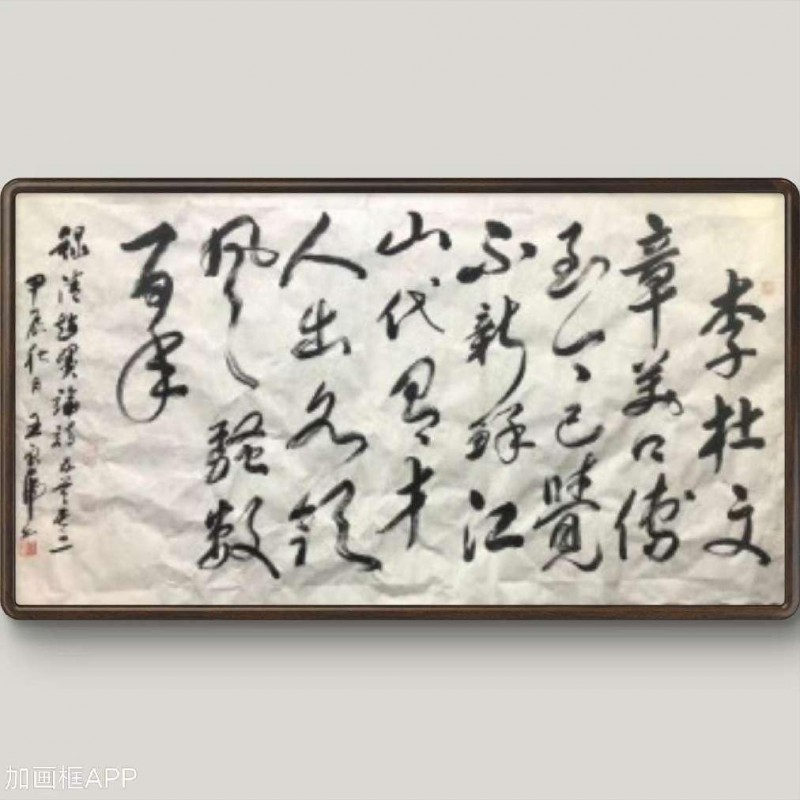 李杜文
章萬口傳
至今已覺
不新鮮江
山代有才
人出各領
風騷數
百年
錄清趙翼論詩五首其二
甲辰秋日王
加画框APP